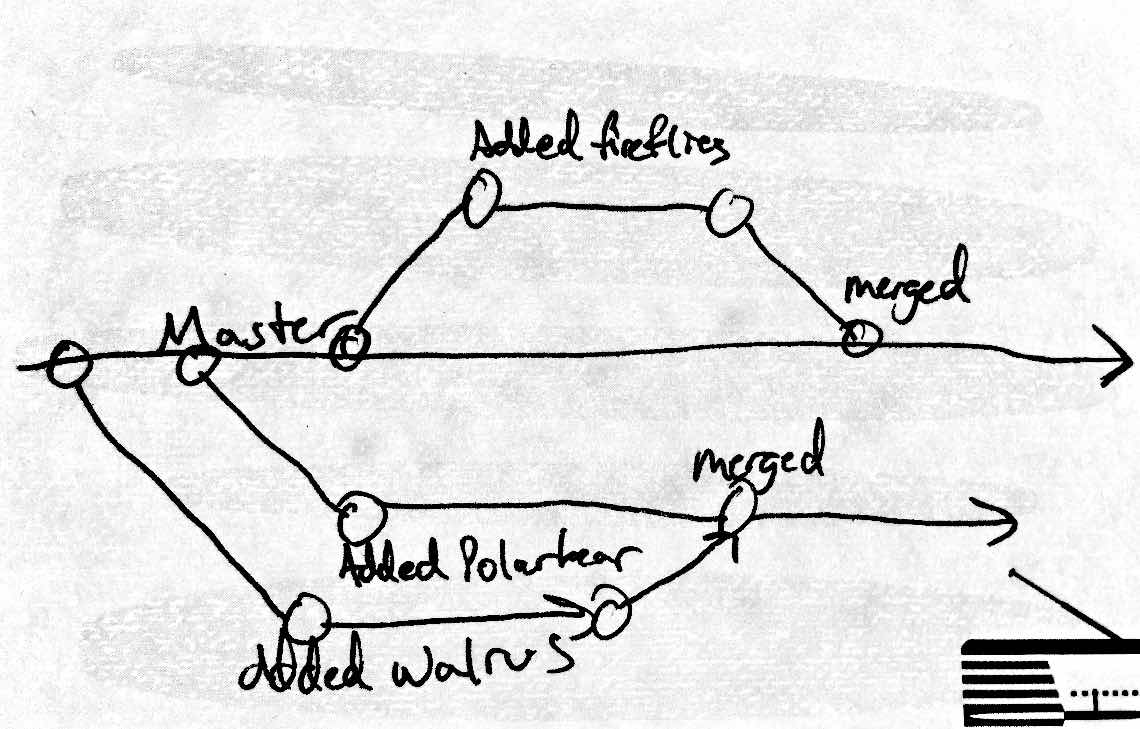 Added fireflies
merged
Master
merged
Added Polarbear
Added walrus